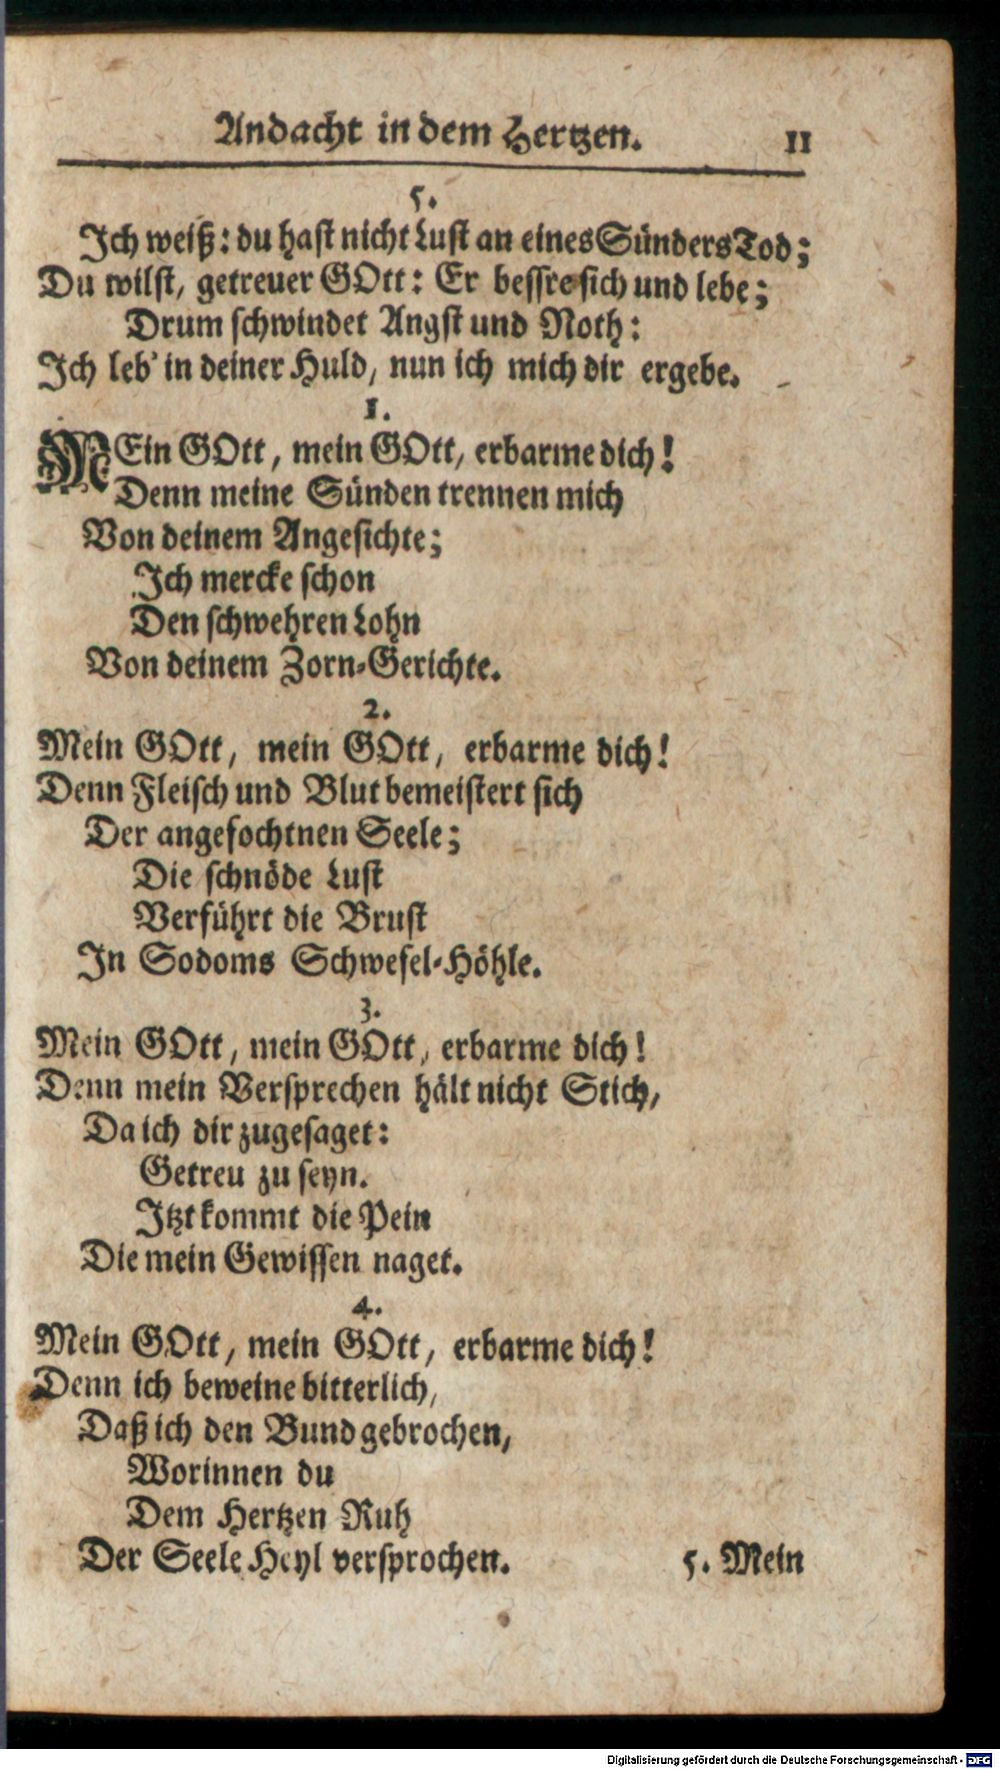 Andacht in dem Hertzen. 11
5.
Ich weiß: du hast nicht Lust an eines Sünders Tod;
Du wilst, getreuer GOtt: Er bessre sich und lebe;
Drum schwindet Angst und Noth:
Ich leb' in deiner Huld, nun ich mich dir ergebe.
1.
MEin GOtt, mein GOtt, erbarme dich!
Denn meine Sünden trennen mich
Von deinem Angesichte;
Ich mercke schon
Den schwehren Lohn
Von deinem Zorn-Gerichte.
2.
Mein GOtt, mein GOtt, erbarme dich!
Denn Fleisch und Blut bemeistert sich
Der angefochtnen Seele;
Die schnöde Lust
Verführt die Brust
In Sodoms Schwefel-Höhle.
3.
Mein GOtt, mein GOtt, erbarme dich!
Denn mein Versprechen hält nicht Stich,
Da ich dir zugesaget:
Getreu zu seyn.
Itzt kommt die Pein
Die mein Gewissen naget.
4.
Mein GOtt, mein GOtt, erbarme dich!
Denn ich beweine bitterlich,
Daß ich den Bund gebrochen,
Worinnen du
Dem Hertzen Ruh
Der Seele Heyl versprochen.
5. Mein
Digitalisierung gefördert durch die Deutsche Forschungsgemeinschaft - DFG